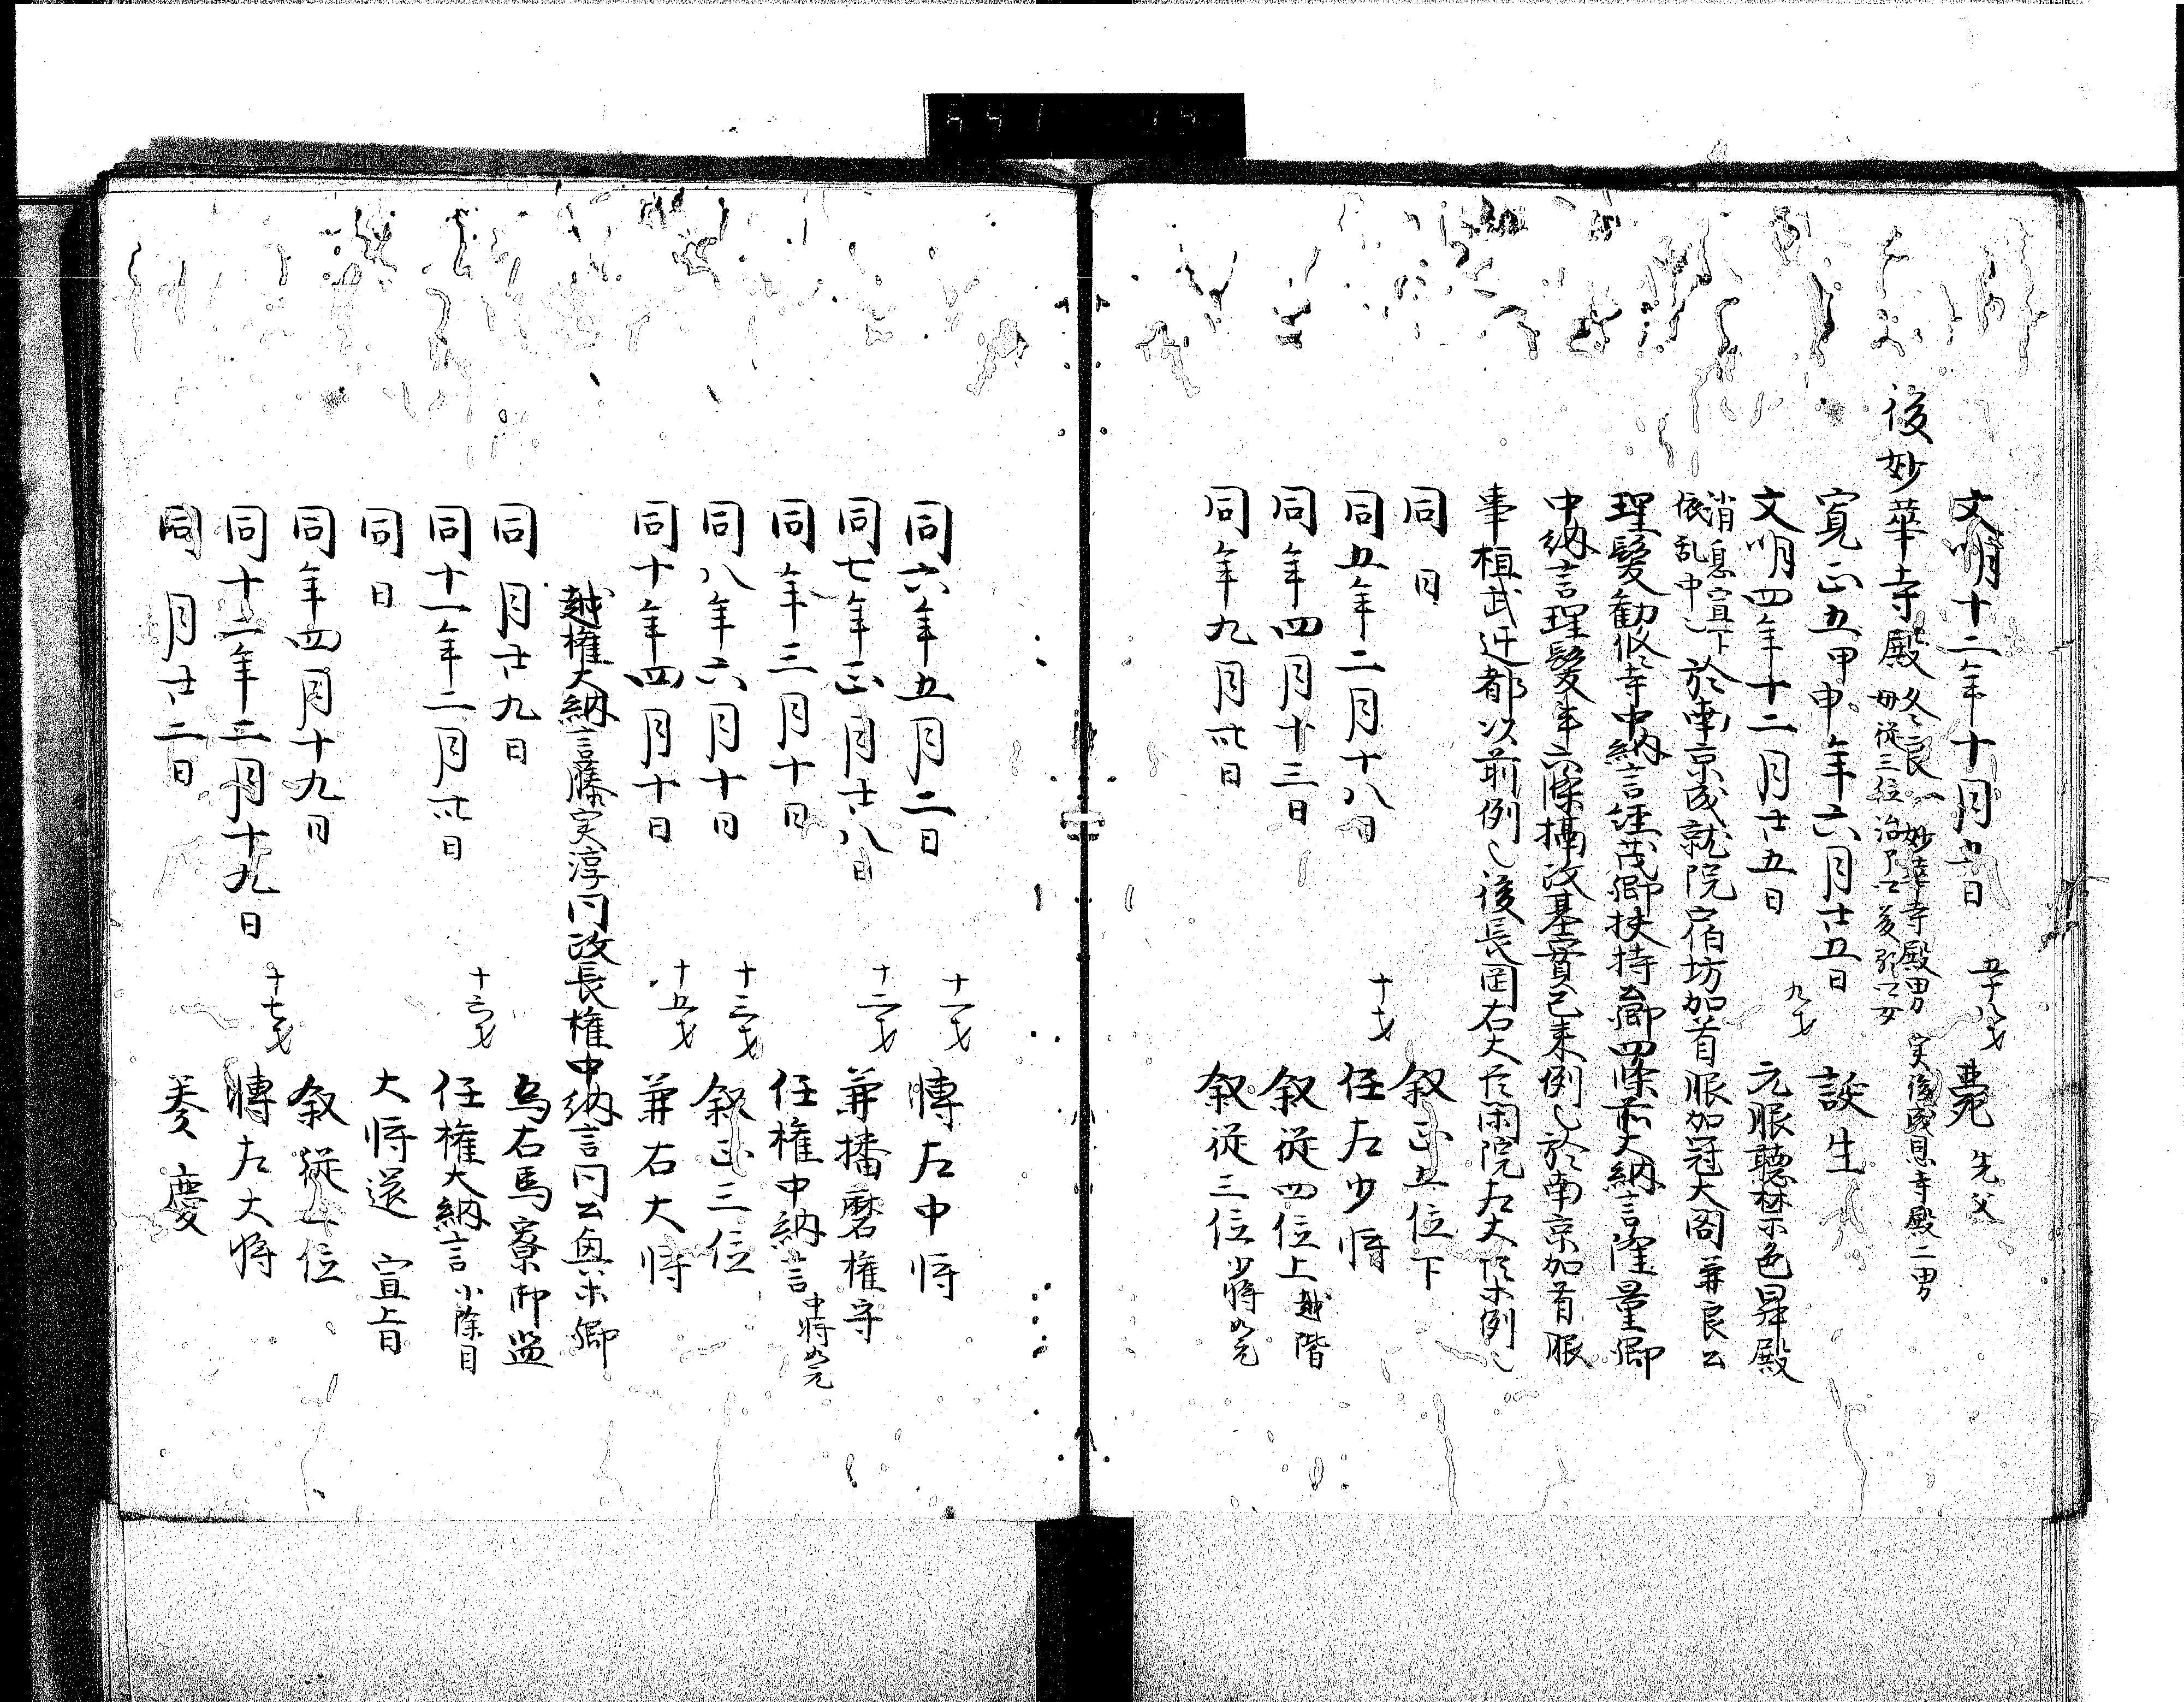 文明十二年十月五日 五十八才 薨 先父
後妙華寺殿 冬良 妙華寺殿男 実後成恩寺殿二男
母従三位
寛正五甲申年六月廿五日 誕生
文明四年十二月廿五日 九才 元服聴禁色昇殿
消息宣下
依乱中也
於南京成就院宿坊加首服加冠大閤兼良公
理髪勧修寺中納言経茂卿扶持公卿四條前大納言隆量卿
中納言理髪事六條摂政基實已来例也於南京加首服
事桓武迁都以前例也後長岡右大臣閑院左大臣等例也
同日 叙正五位下
同五年二月十八日 十才 任左少将
同年四月十三日 叙従四位上越階
同年九月卅日 叙従三位少将如元
同六年五月二日 十一才 轉左中将
同七年正月廿八日 十二才 兼播磨権守
同年三月十日 任権中納言中将如元
同八年六月十日 十三才 叙正三位
同十年四月十日 十五才 兼右大将
越権大納言藤実淳同政長権中納言同公興等卿
同月廿九日 為右馬寮御監
同十一年二月卅日 十六才 任権大納言小除目
同日 大将還宣旨
同年四月十九日 叙従二位
同十二年三月十九日 十七才 轉左大将
同月廿二日 奏慶